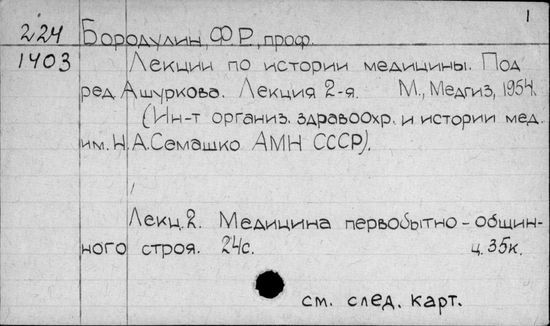 1
224 Бородулин, Ф.Р., проф.
1403 Лекции по истории медицины. Под
ред Ашуркова. Лекция 2-я. М., Медгиз, 1954.
(Ин-т организ. здравоохр. и истории мед.
им. Н.А.Семашко АМН СССР).
Лекц. 2. Медицина первобытно-общин-
ного строя. 24с. ц. 35к.
см. след. карт.